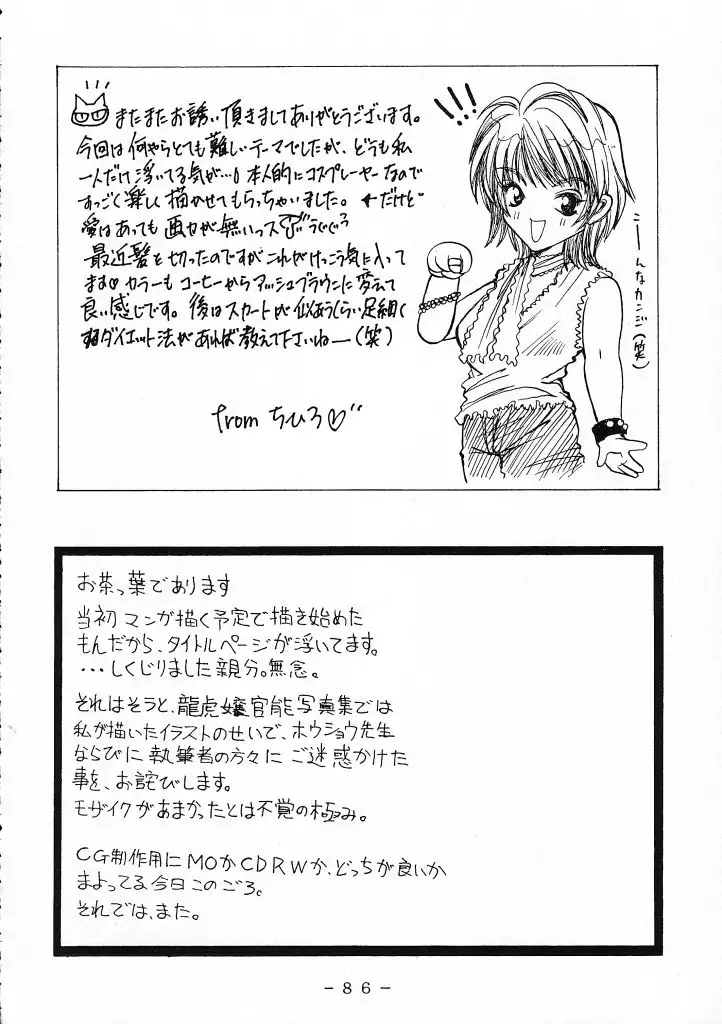 またまたお誘い頂きましてありがとうございます。
今回は何やらとても難しいテーマでしたが、どうも私
一人だけ浮いてる気が…!本人的にコスプレーヤーなので
すっごく楽しく描かせてもらっちゃいました。←だけど
愛はあっても画力が無いっス
最近髪を切ったのですがこれがけっこう気に入って
ます♡カラーもコーヒーからアッシュブラウンに変えて
良い感じです。後はスカートが似あうくらい足細く
するダイエット法があれば教えて下さいねー(笑)
from ちひろ♡
!!!
こーんなカンジ(笑)
お茶っ葉であります
当初マンガ描く予定で描き始めた
もんだから、タイトルページが浮いてます。
・・・しくじりました親分。無念。
それはそうと、龍虎嬢官能写真集では
私が描いたイラストのせいで、ホウショウ先生
ならびに執筆者の方々にご迷惑かけた
事を、お詫びします。
モザイクがあまかったとは不覚の極み。
CG制作用にMOかCDRWか、どっちが良いか
まよってる今日このごろ。
それでは、また。
-86-